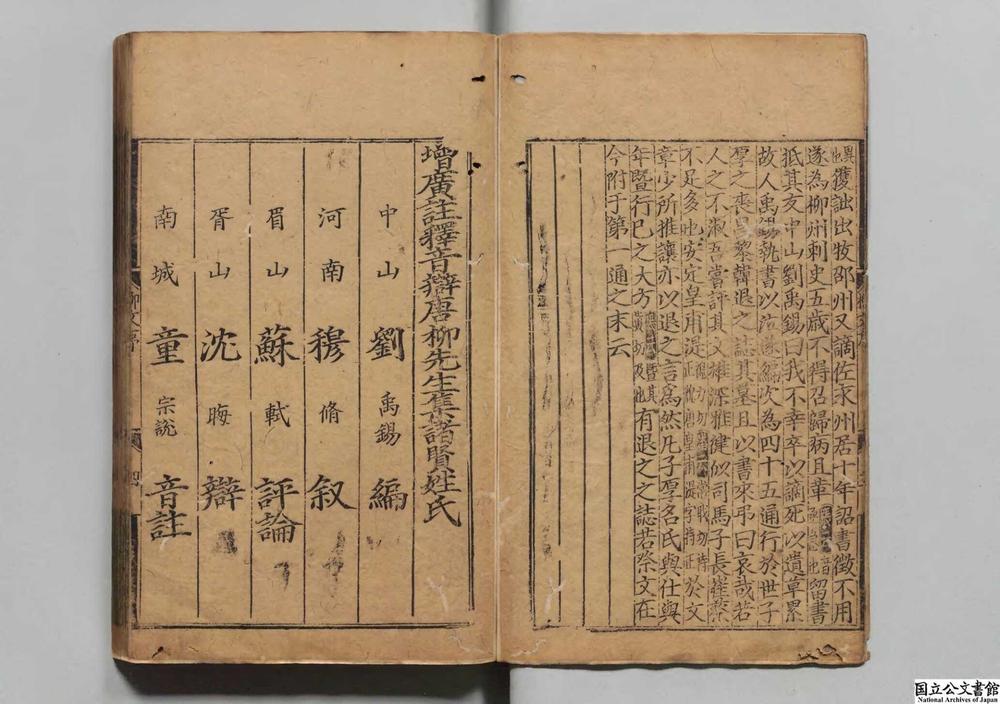 獲詘出牧邵州又謫佐永州居十年詔書徵不用
遂為柳州刺史五歲不得召歸病且革留書
抵其友中山劉禹錫曰我不幸卒以謫死以遺草累
故人禹錫執書以泣遂編次為四十五通行於世子
厚之喪昌黎韓退之誌其墓且以書來弔曰哀哉若
人之不淑吾嘗評其文雄深雅健似司馬子長崔蔡
不足多也安定皇甫湜於文
章少所推讓亦以退之言爲然凢子厚名氏與仕與
年暨行已之大方有退之之誌若祭文在
今附于第一通之末云
增廣註釋音辯唐柳先生集諸賢姓氏
中山 劉 禹錫 編
河南 穆 脩 叙
眉山 蘇 軾 評論
胥山 沈 晦 辯
南城 童 宗說 音註
国立公文書館
National Archives of Japan